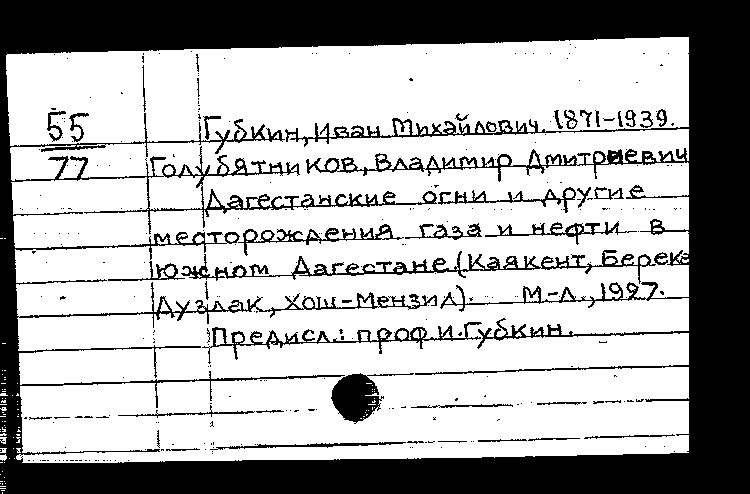 55
77
Губкин, Иван Михайлович. 1871-1939.
Голубятников, Владимир Дмитриевич
Дагестанские огни и другие
месторождения газа и нефти в
южном Дагестане (Каякент, Береке
Дузлак, Хош-Мензил). М-Л., 1927.
Предисл.: проф. И. Губкин.